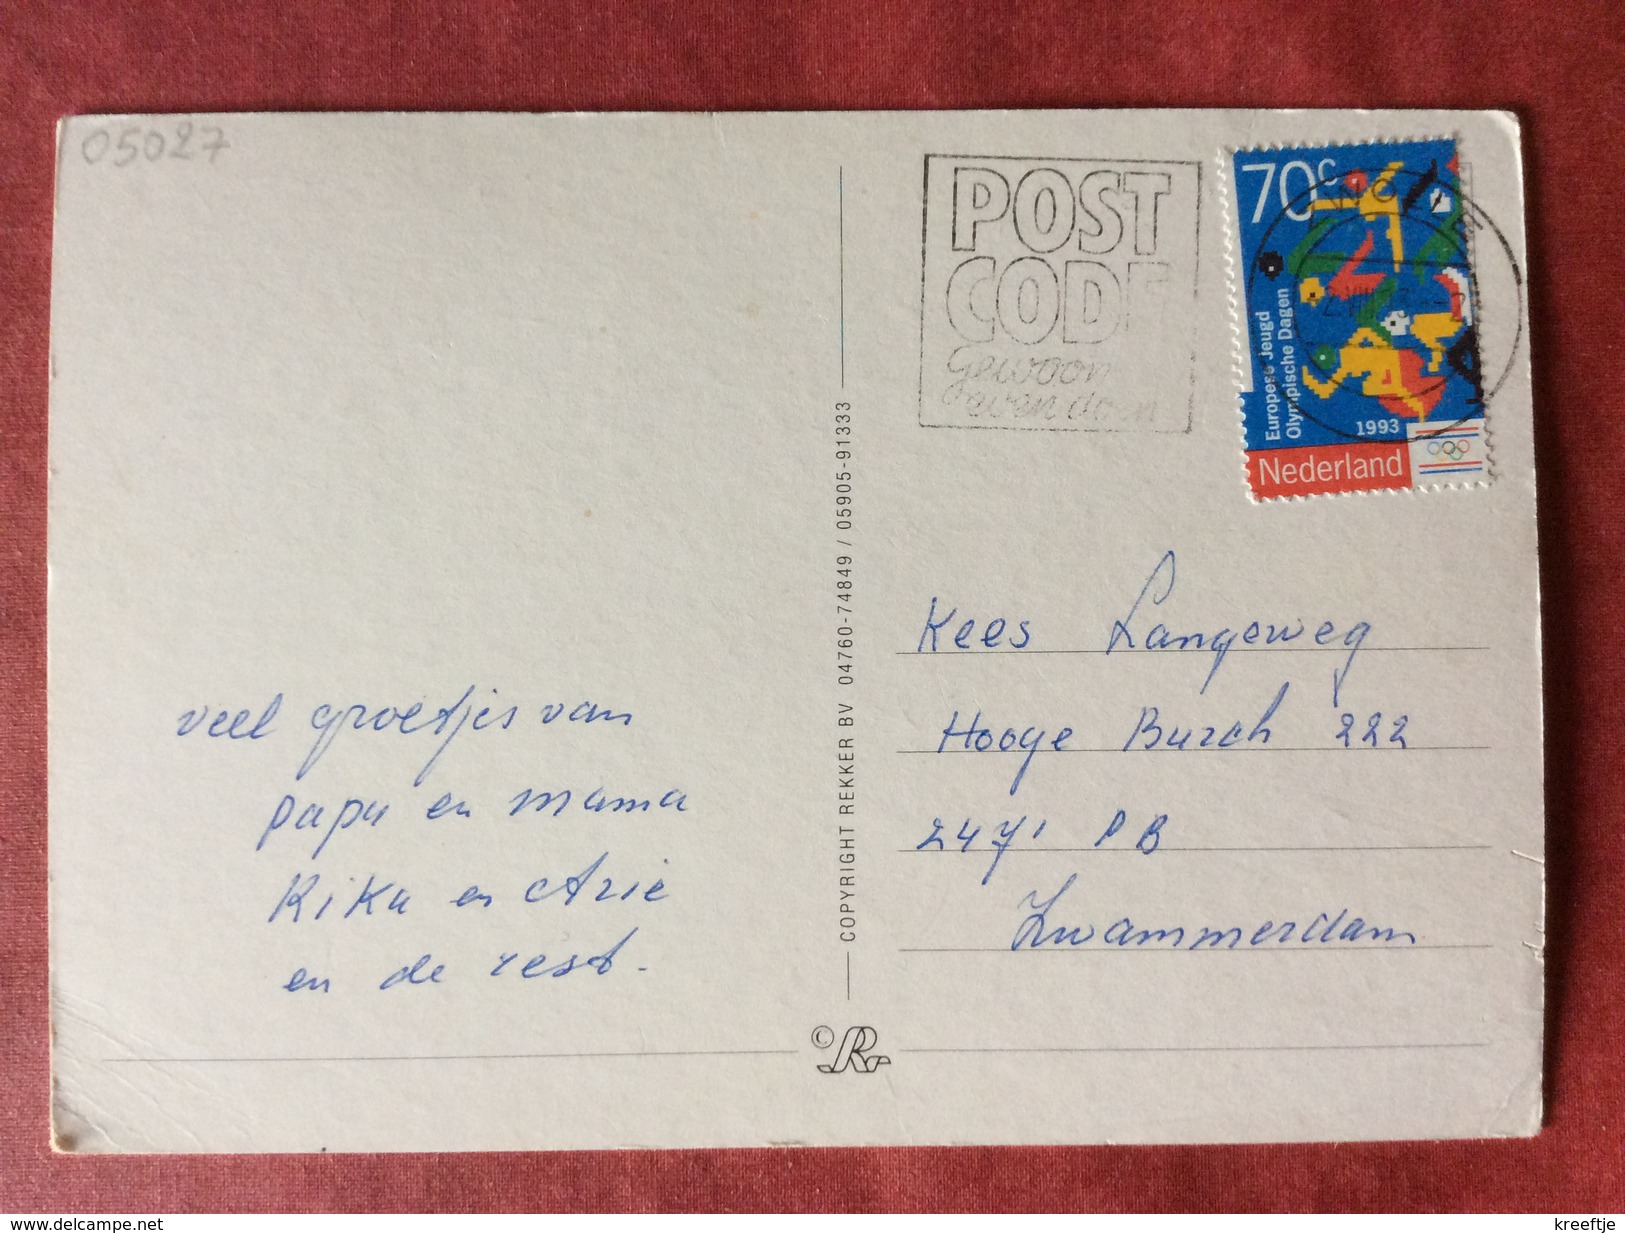 05027
POST
CODE
gewoon
even doen
70c
Europese Jeugd
Olympische Dagen
1993
Nederland
COPYRIGHT REKKER BV 04760-74849 / 05905-91333
veel groetjes van
papa en mama
Rika en Arie
en de rest.
Kees Langeweg
Hooge Burch 222
2471 PB
Zwammerdam
© Rr
www.delcampe.net
kreeftje